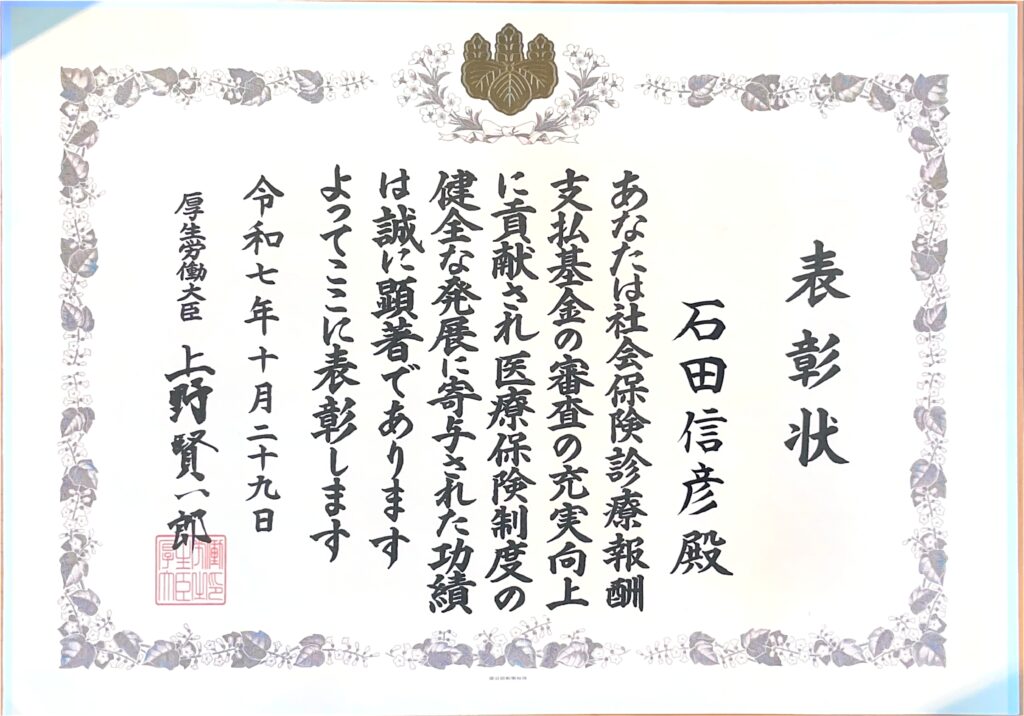 表彰状
石田信彦殿
あなたは社会保険診療報酬
支払基金の審査の充実向上
に貢献され医療保険制度の
健全な発展に寄与された功績
は誠に顕著であります
よってここに表彰します
令和七年十月二十九日
厚生労働大臣 上野賢一郎